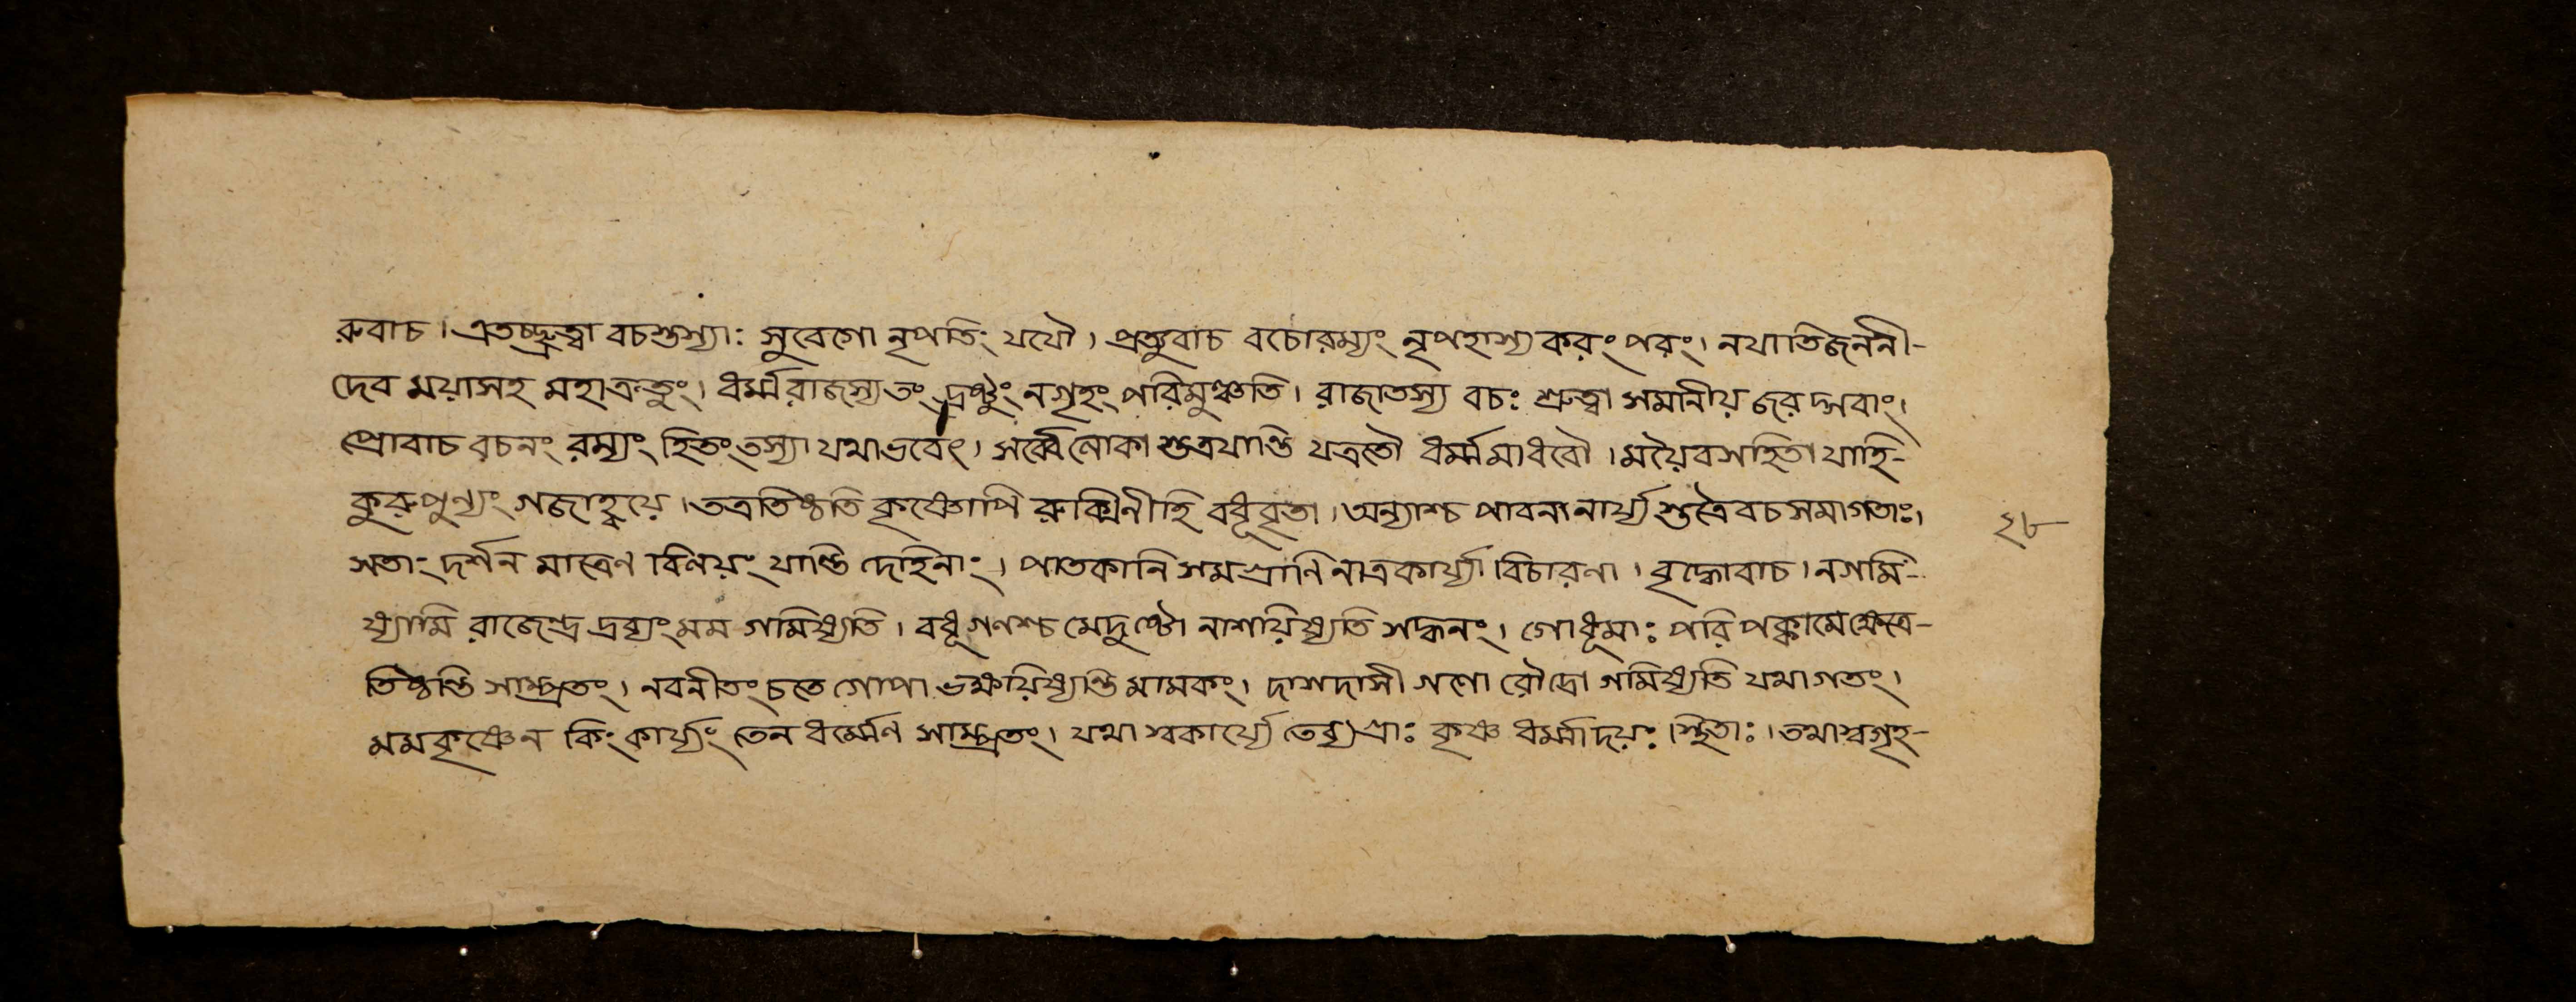 রুবাচ। এতচ্ছ্রুত্বা বচস্তস্যাঃ সুবেগো নৃপতিং যযৌ। প্রত্যুবাচ বচোরম্যং নৃপহাস্য করং পরং। নযাতিজননী-
দেব ময়াসহ মহাক্রতুং। ধর্ম্মরাজস্যতং দ্রষ্টুং নগৃহং পরিমুঞ্চতি। রাজাতস্য বচঃ শ্রুত্বা সমানীয় জরদ্গবাং।
প্রোবাচ বচনং রম্যং হিতং তস্যা যথাভবেৎ। সর্ব্বেলোকা স্তত্রযান্তি যত্রতৌ ধর্ম্মমাধবৌ। ময়ৈবসহিতা যাহি-
কুরুপুণ্যং গজাহ্বয়ে। তত্রতিষ্ঠতি কৃষ্ণোপি রুক্মিনীহি বধূবৃতা। অন্যাশ্চ পাবনা নার্য্য স্তত্রৈবচসমাগতাঃ।
সতাং দর্শন মাত্রেণ বিলয়ং যান্তি দেহিনাং। পাতকানি সমগ্রাণি নাত্রকার্য্যা বিচারণা। বৃদ্ধোবাচ। নগমি-
ষ্যামি রাজেন্দ্র দ্রব্যং মম গমিষ্যতি। বধূগণশ্চ মেদুষ্টো নাশয়িষ্যতি সদ্ধনং। গোধূমাঃ পরিপক্বামেক্ষেত্রে-
তিষ্ঠন্তি সাম্প্রতং। নবনীতং চতে গোপা ভক্ষয়িষ্যন্তি মামকং। দাসদাসী গণো রৌদ্রো গমিষ্যতি যথাগতং।
মমকৃষ্ণেন কিং কার্য্যং তেন ধর্ম্মেণ সাম্প্রতং। যথা স্বকার্য্যে তেব্যগ্রাঃ কৃষ্ণ ধর্ম্মাদয়ঃ স্থিতাঃ। তথাস্বগৃহ-
২৮